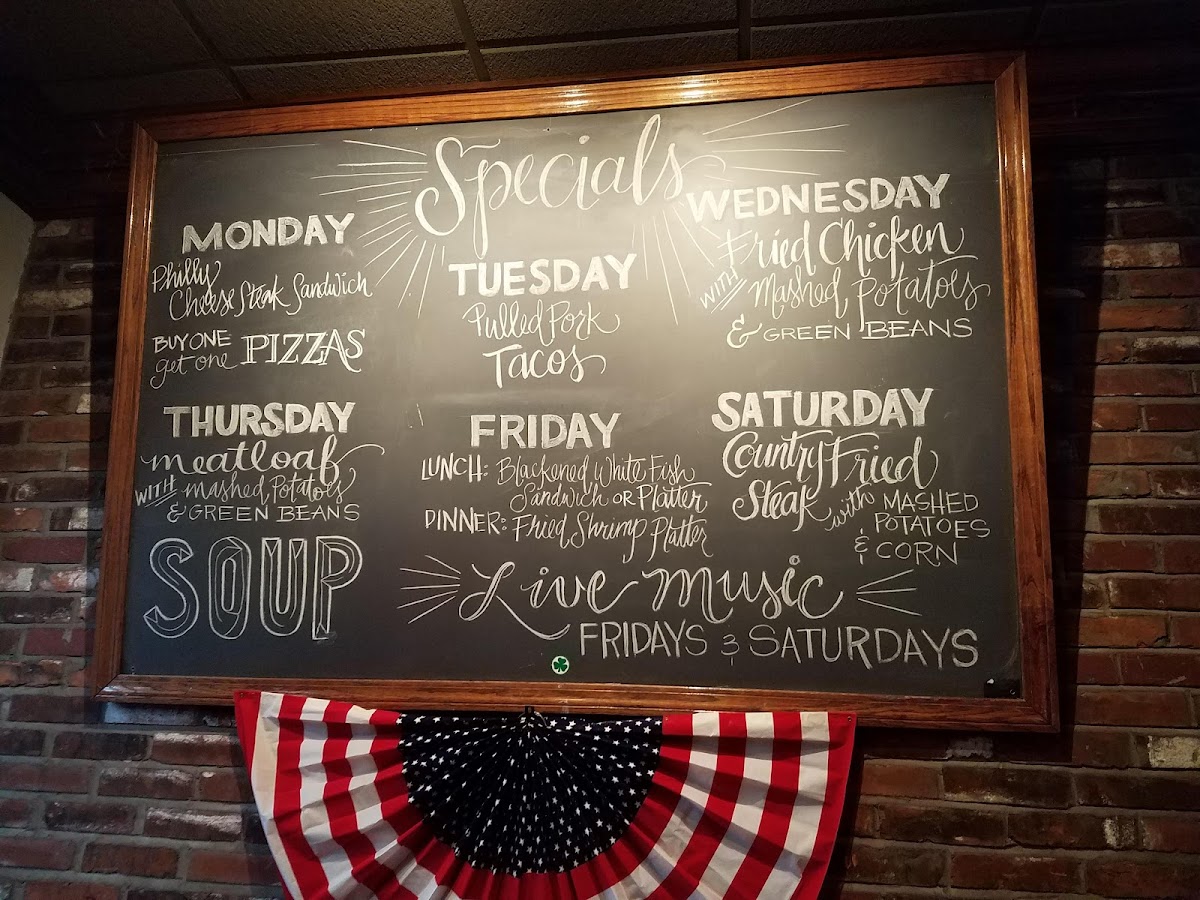 Specials
MONDAY
Philly
Cheese Steak Sandwich
BUY ONE
get one PIZZAS
TUESDAY
Pulled Pork
Tacos
WEDNESDAY
Fried Chicken
WITH Mashed Potatoes
& GREEN BEANS
THURSDAY
meatloaf
WITH mashed Potatoes
& GREEN BEANS
SOUP
FRIDAY
LUNCH: Blackened White Fish
Sandwich OR Platter
DINNER: Fried Shrimp Platter
SATURDAY
Country Fried
Steak with MASHED
POTATOES
& CORN
Live Music
FRIDAYS & SATURDAYS